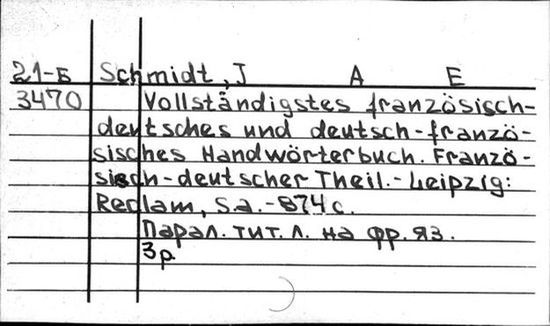 21-Б Schmidt, J A E
3470 Vollständigstes französisch-
deutsches und deutsch-franzö-
sisches Handwörterbuch. Franzö-
sisch-deutscher Theil.- Leipzig:
Reclam, s.a.-874 c.
Парал. тит. л. на фр. яз.
3р.